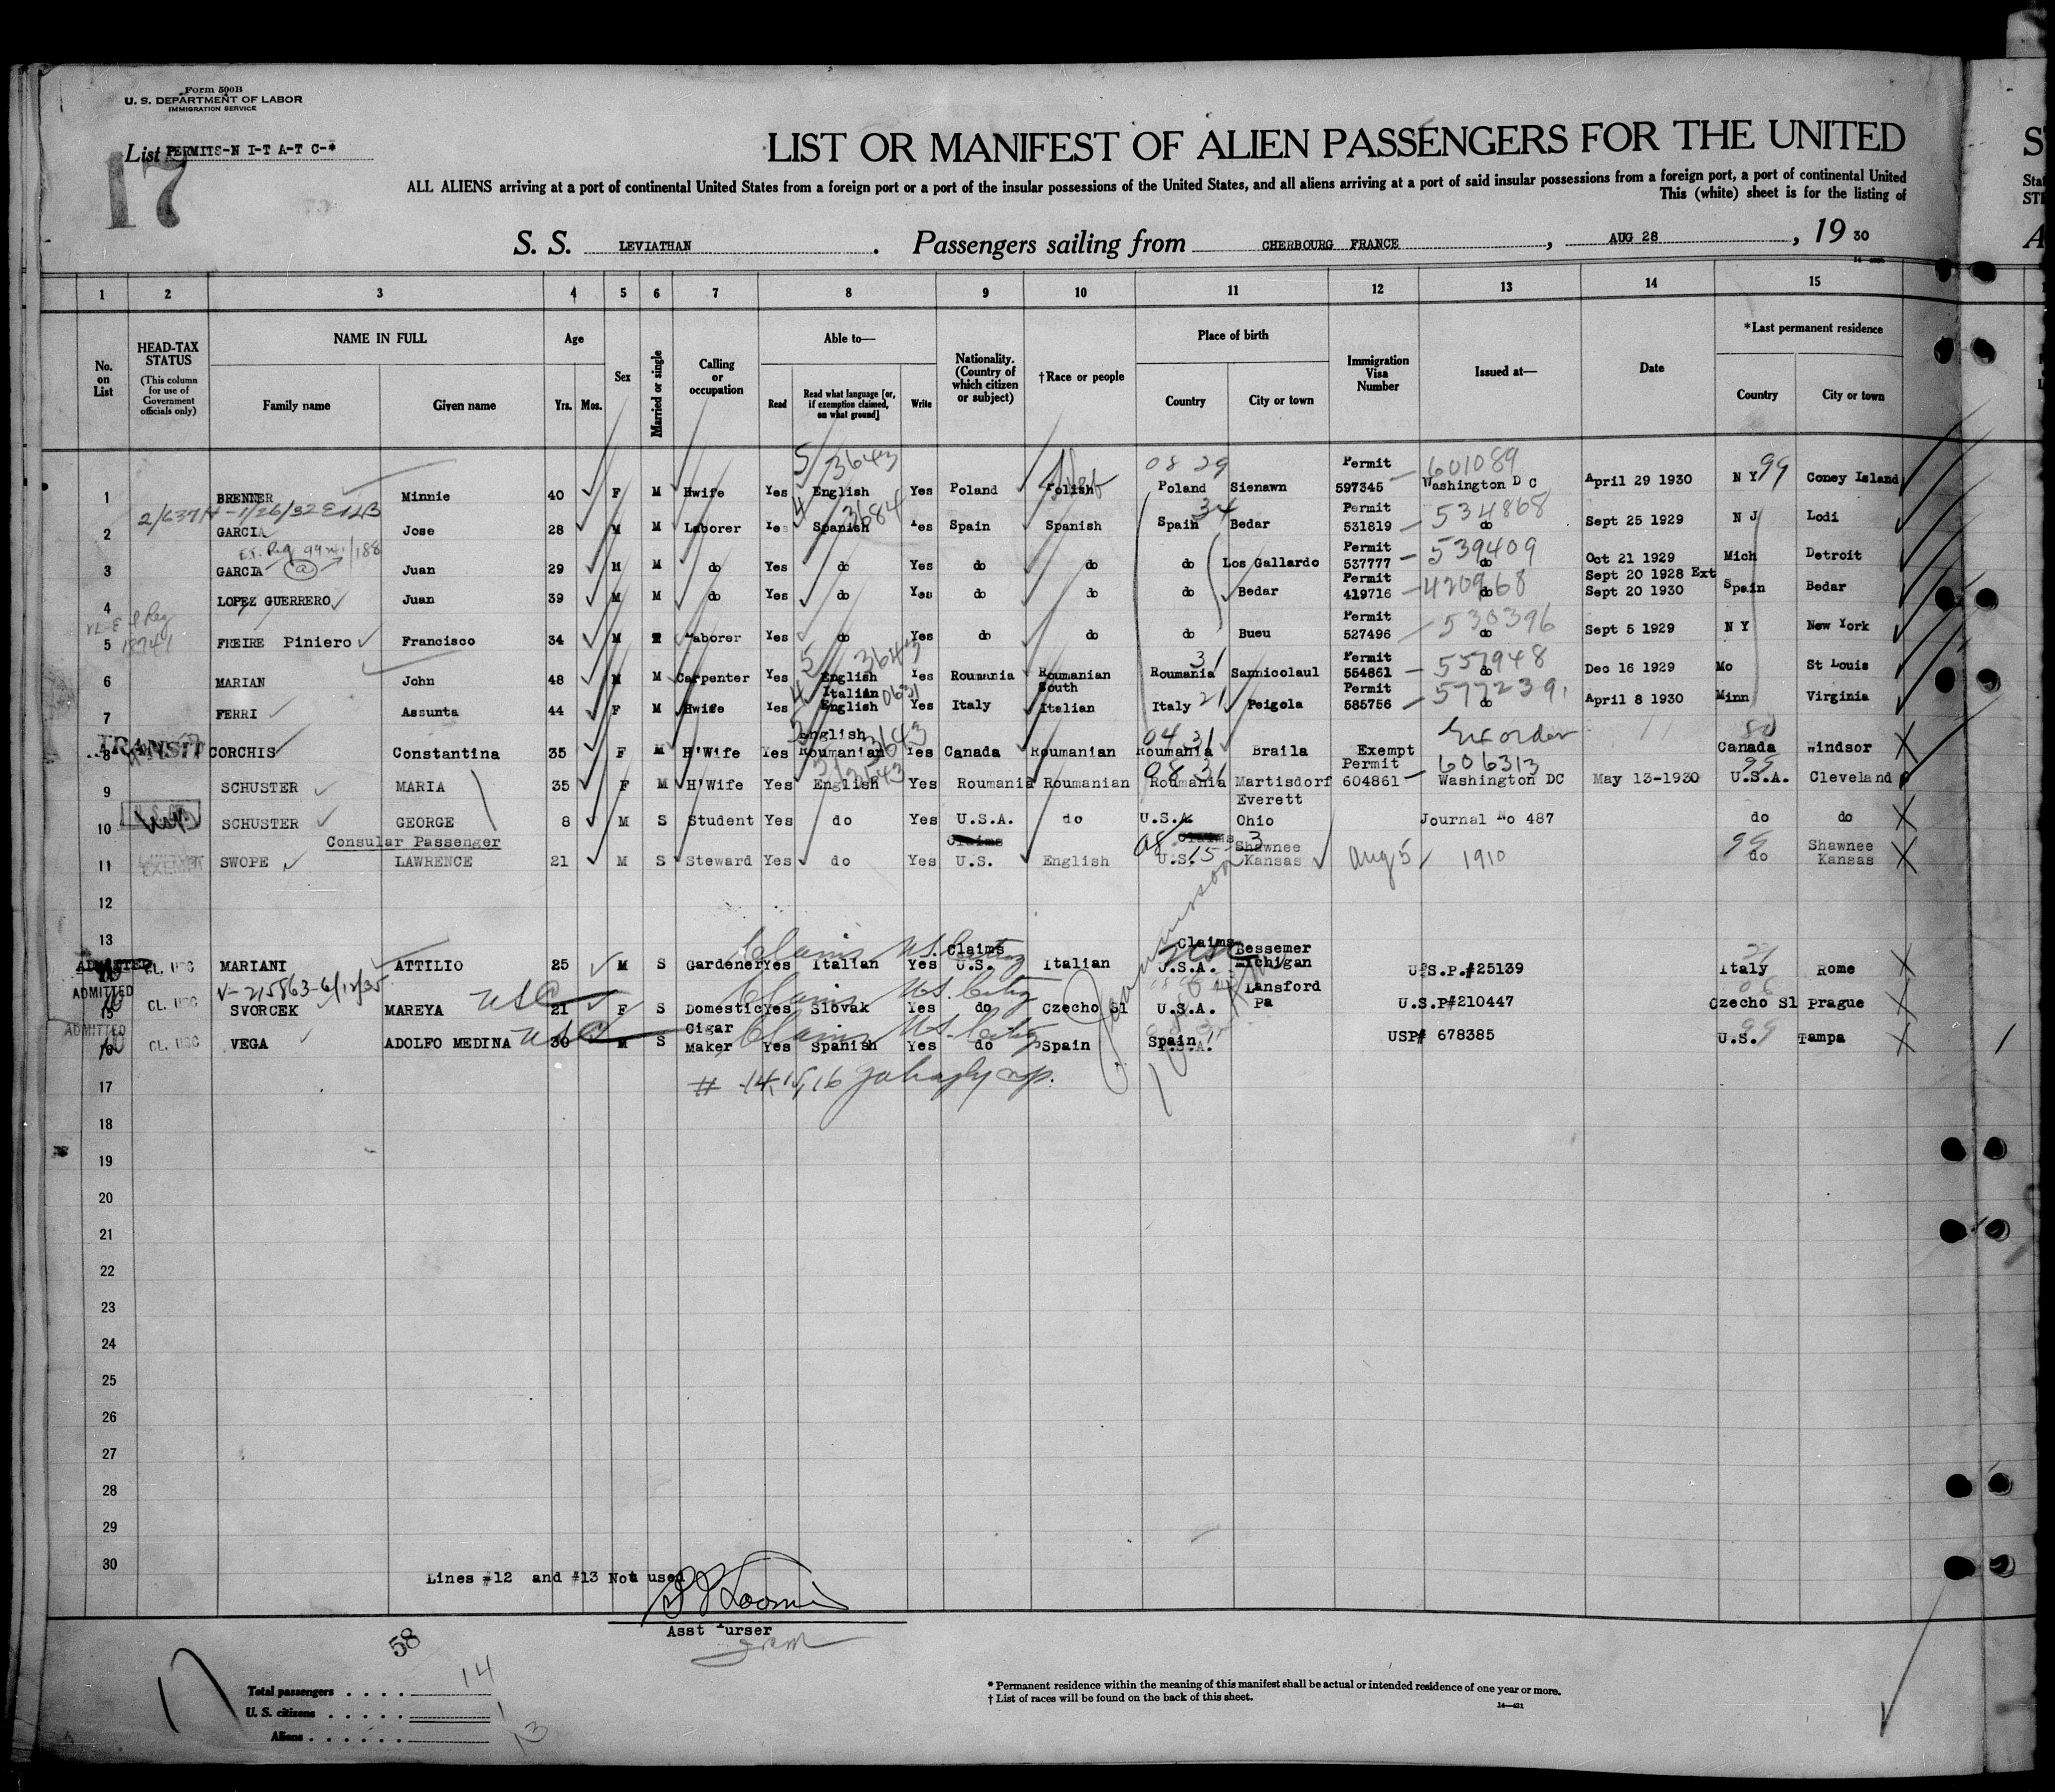 Form 500B
U. S. DEPARTMENT OF LABOR
IMMIGRATION SERVICE
List PERMITS-N I-T A-T C-*
17
LIST OR MANIFEST OF ALIEN PASSENGERS FOR THE UNITED
ALL ALIENS arriving at a port of continental United States from a foreign port or a port of the insular possessions of the United States, and all aliens arriving at a port of said insular possessions from a foreign port, a port of continental United
This (white) sheet is for the listing of
S. S. LEVIATHAN . Passengers sailing from CHERBOURG FRANCE , AUG 28 , 19 30
1 2 3 4 5 6 7 8 9 10 11 12 13 14 15
No. on List
HEAD-TAX STATUS (This column for use of Government officials only)
NAME IN FULL Family name Given name
Age Yrs. Mos.
Sex
Married or single
Calling or occupation
Able to— Read Read what language [or, if exemption claimed, on what ground] Write
Nationality. (Country of which citizen or subject)
†Race or people
Place of birth Country City or town
Immigration Visa Number
Issued at—
Date
*Last permanent residence Country City or town
5 3643 08 29 Permit 601089 99
1 BRENNER Minnie 40 F M Hwife Yes English Yes Poland Polish Poland Sienawn 597345 Washington D C April 29 1930 N Y Coney Island
3684 34 Permit 534868
2 GARCIA Jose 28 M M Laborer Yes Spanish Yes Spain Spanish Spain Bedar 531819 do Sept 25 1929 N J Lodi
Permit 539409
3 GARCIA Juan 29 M M do Yes do Yes do do do Los Gallardo 537777 do Oct 21 1929 Mich Detroit
Permit 420968 Sept 20 1928 Ext
4 LOPEZ GUERRERO Juan 39 M M do Yes do Yes do do do Bedar 419716 do Sept 20 1930 Spain Bedar
Permit 530396
5 FREIRE Piniero Francisco 34 M Laborer Yes do Yes do do do Bueu 527496 do Sept 5 1929 N Y New York
5 3643 31 Permit 557948
6 MARIAN John 48 M M Carpenter Yes English Yes Roumania Roumanian Roumania Sannicolaul 554861 do Dec 16 1929 Mo St Louis
Italian South Permit 577239
7 FERRI Assunta 44 F M Hwife Yes English Yes Italy Italian Italy 21 Peigola 585756 do April 8 1930 Minn Virginia
English 3643 04 31 Ex order
TRANSIT
8 CORCHIS Constantina 35 F M H'Wife Yes Roumanian Yes Canada Roumanian Roumania Braila Exempt Canada Windsor
3643 08 31 Permit 606313 99
9 SCHUSTER MARIA 35 F M H'Wife Yes English Yes Roumania Roumanian Roumania Martisdorf 604861 Washington DC May 13-1930 U.S.A. Cleveland
Everett
10 SCHUSTER GEORGE 8 M S Student Yes do Yes U.S.A. do U.S.A Ohio Journal No 487 do do
Consular Passenger Claims Claims Shawnee Shawnee
11 SWOPE LAWRENCE 21 M S Steward Yes do Yes U.S. English U.S. Kansas Aug 5 1910 do Kansas
12
13
Claims U.S. Claims Claims Bessemer
ADMITTED CL. USC MARIANI ATTILIO 25 M S Gardener Yes Italian Yes U.S. Italian U.S.A. Michigan U.S.P.#25139 Italy Rome
ADMITTED V-215863-6/12/35 USC Claims U.S. Lansford
15 CL. USC SVORCEK MAREYA 21 F S Domestic Yes Slovak Yes do Czecho Sl U.S.A. Pa U.S.P#210447 Czecho Sl Prague
ADMITTED USC Cigar Claims U.S.
16 CL. USC VEGA ADOLFO MEDINA 30 M S Maker Yes Spanish Yes do Spain Spain USP# 678385 U.S. Tampa
17 # 14, 15, 16
18
19
20
21
22
23
24
25
26
27
28
29
30
Lines #12 and #13 Not used
Asst Purser
58
Total passengers . . . . 14
U. S. citizens . . . . . 1
Aliens . . . . . . 13
* Permanent residence within the meaning of this manifest shall be actual or intended residence of one year or more.
† List of races will be found on the back of this sheet.